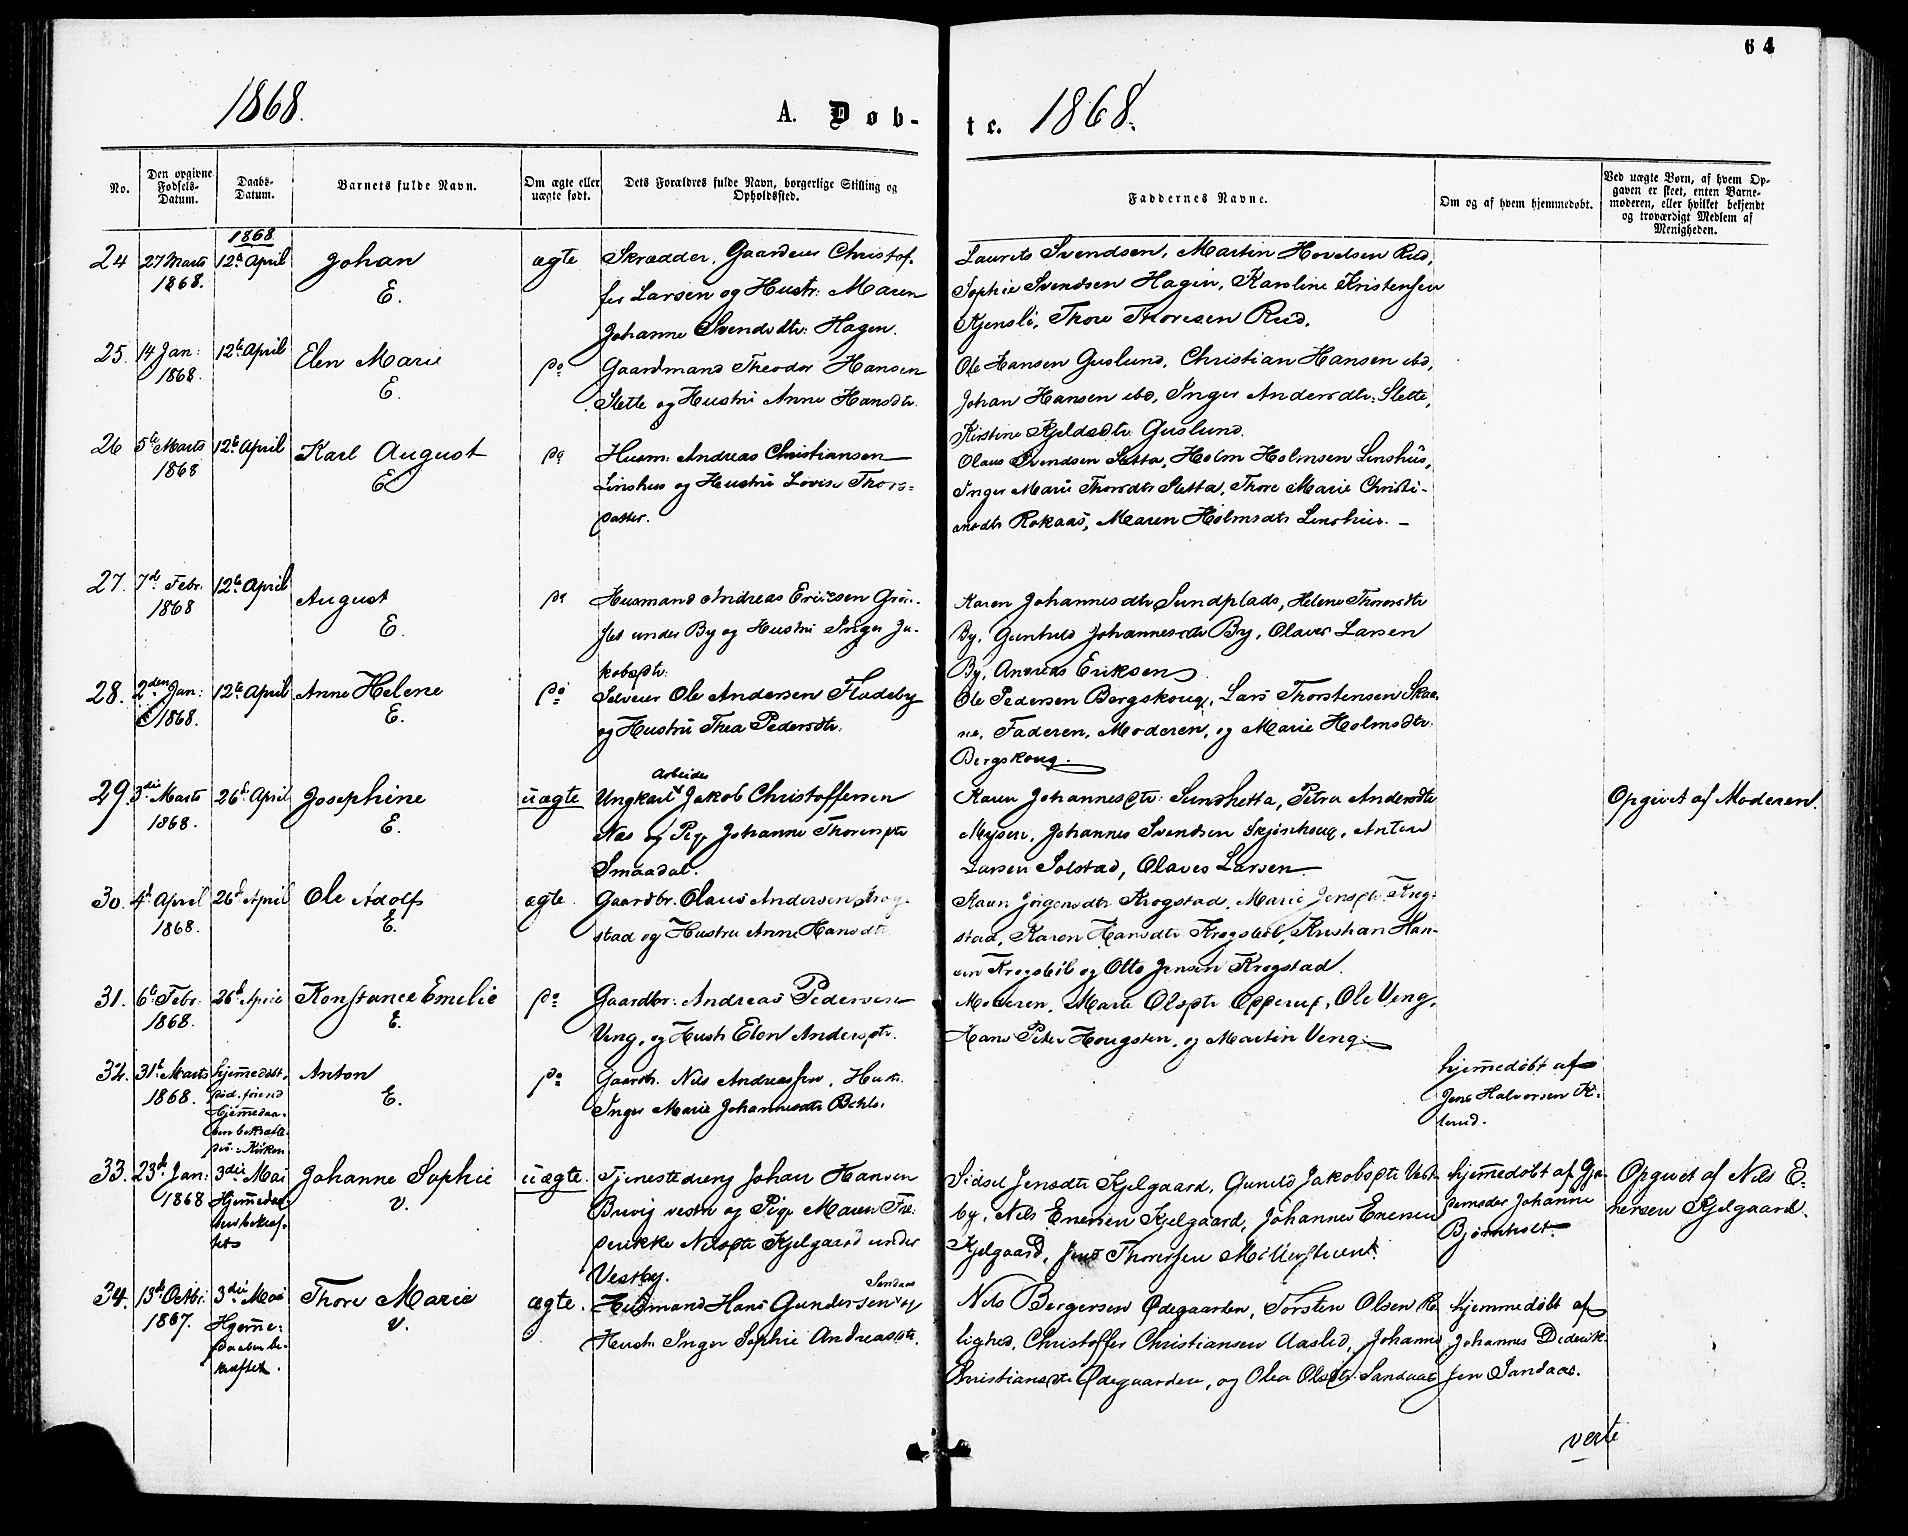 64
1868.
A. Døb-
te. 1868.
No.
Den opgivne
Fødsels-
Datum.
Daabs-
Datum.
Barnets fulde Navn.
Om ægte eller
uægte født.
Dets Forældres fulde Navn, borgerlige Stilling og
Opholdssted.
Faddernes Navne.
Om og af hvem hjemmedøbt.
Ved uægte Børn, af hvem Op-
gaven er skeet, enten Barne-
moderen, eller hvilket bekjendt
og troværdigt Medlem af
Menigheden.
1868.
24
27 Marts
1868.
12te April
Johan
E.
ægte
Skrædder, Christof-
fer Larsen og Hustr: Maren
Johanne Svendsdtr: Hagen.
Laurits Svendsen, Martin Hovelsen Rud,
Sophie Svendsen Hagen, Karoline Kristensen
Kjensli, Thore Thoresen Rud.
25.
14 Jan:
1868.
12te April
Elen Marie
E.
do
Gaardmand Theodor Hansen
Slette og Hustru Anne Hansdtr.
Ole Hansen Guslund, Christian Hansen ibd,
Johan Hansen ibd, Inger Andersdtr: Slette,
Kirstine Kjeldsdtr Guslund.
26
5te Marts
1868
12te April
Karl August
E.
do
Husm: Andreas Christiansen
Linshus og Hustru Lovise Thors-
datter.
Olaus Svendsen Sletta, Holm Holmsen Linshus,
Inger Marie Thorsdtr Sletta, Thore Marie Christi-
ansdtr Rokaas, Maren Holmsdtr Linshus. –
27.
7de Febr.
1868
12te April
August
E.
do
Husmand Andreas Ericsen Grøn-
under By og Hustru Inger Ja-
kobsdtr:
Karen Johannesdtr Sundplads, Helene Thoresdtr
By, Gunhild Johannesdtr By, Olaves Larsen
By, Andreas Eriksen
28.
2den Jan:
1868.
12te April
Anne Helene
E.
do
Selveier Ole Andersen Fladeby
og Hustru Thea Pedersdtr.
Ole Pedersen Bergskoug, Lars Thorstensen Skaa-
ne, Faderen, Moderen, og Marie Holmsdtr.
Bergskoug.
29.
3die Marts
1868.
26de April
Josephine
E.
uægte
Arbeider
Ungkarl Jakob Christoffersen
Næs og Pige Johanne Thoresdtr
Smaadal.
Karen Johannesdtr: Sundsletta, Petra Andersdtr
Mysen, Johannes Svendsen Skjønhoug, Anton
Larsen Solstad, Olaves Larsen
Opgivet af Moderen.
30.
4de April
1868.
26de April
Ole Adolf
E.
ægte.
Gaardbr. Olaus Andersen Krog-
stad og Hustru Anne Hansdtr
Karen Jørgensdtr Krogstad, Marie Jensdtr Krog-
stad, Karen Hansdtr Krogsbøl, Kristian Han-
sen Krogsbøl og Otto Jensen Krogstad.
31.
6te Febr.
1868.
26de April
Konstance Emelie
E.
do
Gaardbr: Andreas Pedersen
Veng, og Hustr Elen Andersdtr.
Moderen, Marte Olsdtr Opperud, Ole Veng,
Hans Peter Hougsten, og Martin Veng.
32.
31te Marts
1868.
hjemmedøbt,
død, forend
Hjemmedaa-
ben bekræfte-
des i Kirken
Anton
E.
do
Gaardbr. Nils Andreassen, Hustr.
Inger Marie Johannesdtr
hjemmedøbt af
Jens Halvorsen K-
lund.
33.
23de Jan:
1868
3die Mai
Hjemmedaa-
ben bekræf-
tet
Johanne Sophie
v.
uægte.
Tjenestedreng Johan Hansen
Brevig vestre og Pige Maren Fre-
derikke Nilsdtr Kjelgaard under
Vestby.
Sidsel Jensdtr Kjelgaard, Gunild Jakobsdtr Vest-
by, Nils Enersen Kjelgaard, Johannes Enersen
Kjelgaard, Jens Thoresen
hjemmedøbt af Gjo-
rdemoder Johanne
Bjørnholt.
Opgivet af Nils E-
nersen Kjelgaard.
34.
13de Octbr.
1867.
3die Mai
Hjemme-
daaben be-
kræftet.
Thore Marie
v.
ægte.
Sandaas
Husmand Hans Gundersen og
Hustr. Inger Sophie Andreasdtr.
Nils Bergersen Ødegaarden, Torsten Olsen Ro-
lighed, Christoffer Christiansen Aaslid, Johanne
Christiansdtr Ødegaarden, og Olea Olsdtr. Sandaas
hjemmedøbt af
Johannes Diderik-
sen Sandaas.
verte